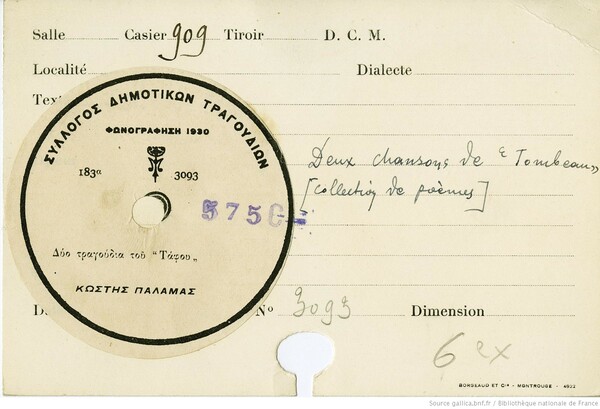 Salle Casier 909 Tiroir D. C. M.
Localité Dialecte
Tex
ΣΥΛΛΟΓΟΣ ΔΗΜΟΤΙΚΩΝ ΤΡΑΓΟΥΔΙΩΝ
ΦΩΝΟΓΡΑΦΗΣΗ 1930
183α 3093
5750
Δύο τραγούδια τοῦ "Τάφου„
ΚΩΣΤΗΣ ΠΑΛΑΜΑΣ
Deux chansons de "Tombeau„
[collection de poèmes]
D Nº 3093 Dimension
6 ex
BORDEAUD ET Cie - MONTROUGE - 4632
Source gallica.bnf.fr / Bibliothèque nationale de France